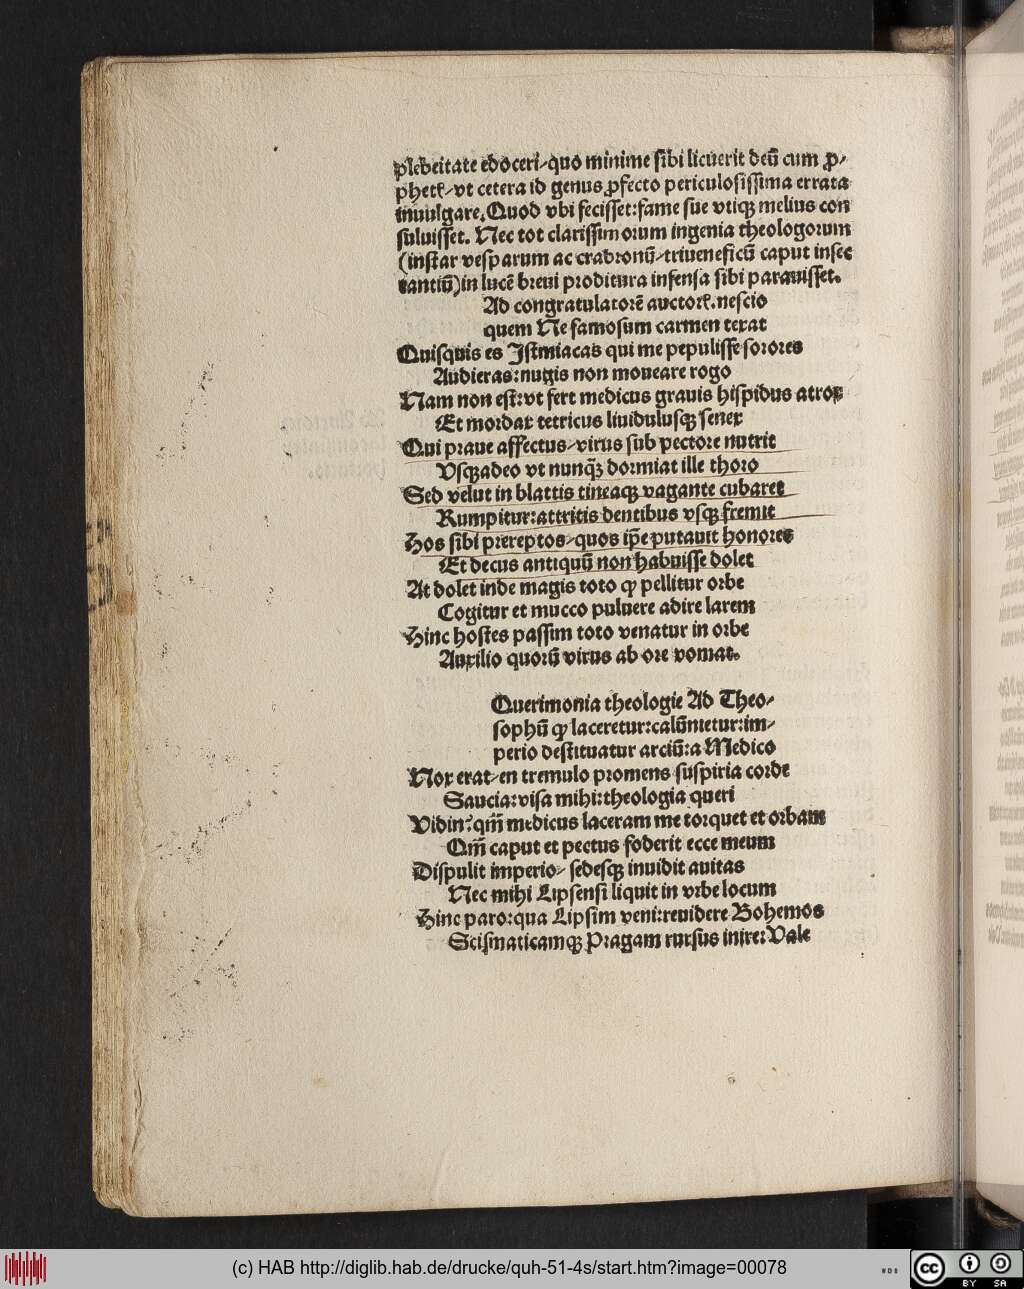 plebeitate edoceri/quo minime ſibi licuerit deū cum ꝓ/
phetꝭ/vt cetera id genus ꝓfecto periculoſiſſima errata
inuulgare. Quod vbi feciſſet: fame ſue vtiqꝫ melius con
ſuluiſſet. Nec tot clariſſimorum ingenia theologorum
(inſtar veſparum ac crabronū/triueneficū caput inſec
tantiū) in lucē breui proditura infenſa ſibi parauiſſet.
Ad congratulatorē auctorꝭ. neſcio
quem Ne famoſum carmen texat
Quiſquis es Iſtmiacas qui me pepuliſſe ſorores
Audieras: nugis non moueare rogo
Nam non eſt: vt fert medicus grauis hiſpidus atrox
Et mordax tetricus liuidulusqꝫ ſenex
Qui praue affectus/virus ſub pectore nutrit
Vſqꝫadeo vt nunqꝫ̄ dormiat ille thoro
Sed velut in blattis tineaqꝫ vagante cubaret
Rumpitur: attritis dentibus vſqꝫ fremit
Hos ſibi prereptos/quos ip̄e putauit honores
Et decus antiquū non habuiſſe dolet
At dolet inde magis toto ꝙ pellitur orbe
Cogitur et mucco puluere adire larem
Hinc hoſtes paſſim toto venatur in orbe
Auxilio quorū virus ab ore vomat.
Querimonia theologie Ad Theo/
ſophū ꝙ laceretur: calūnietur: im/
perio deſtituatur arciū: a Medico
Nox erat/en tremulo promens ſuſpiria corde
Saucia: viſa mihi: theologia queri
Vidin? qm̄ medicus laceram me torquet et orbam
Qm̄ caput et pectus foderit ecce meum
Diſpulit imperio/ ſedeſqꝫ inuidit auitas
Nec mihi Lipſenſi liquit in vrbe locum
Hinc paro: qua Lipſim veni: reuidere Bohemos
Sciſmaticamqꝫ Pragam rurſus inire: Vale
(c) HAB http://diglib.hab.de/drucke/quh-51-4s/start.htm?image=00078
BY SA